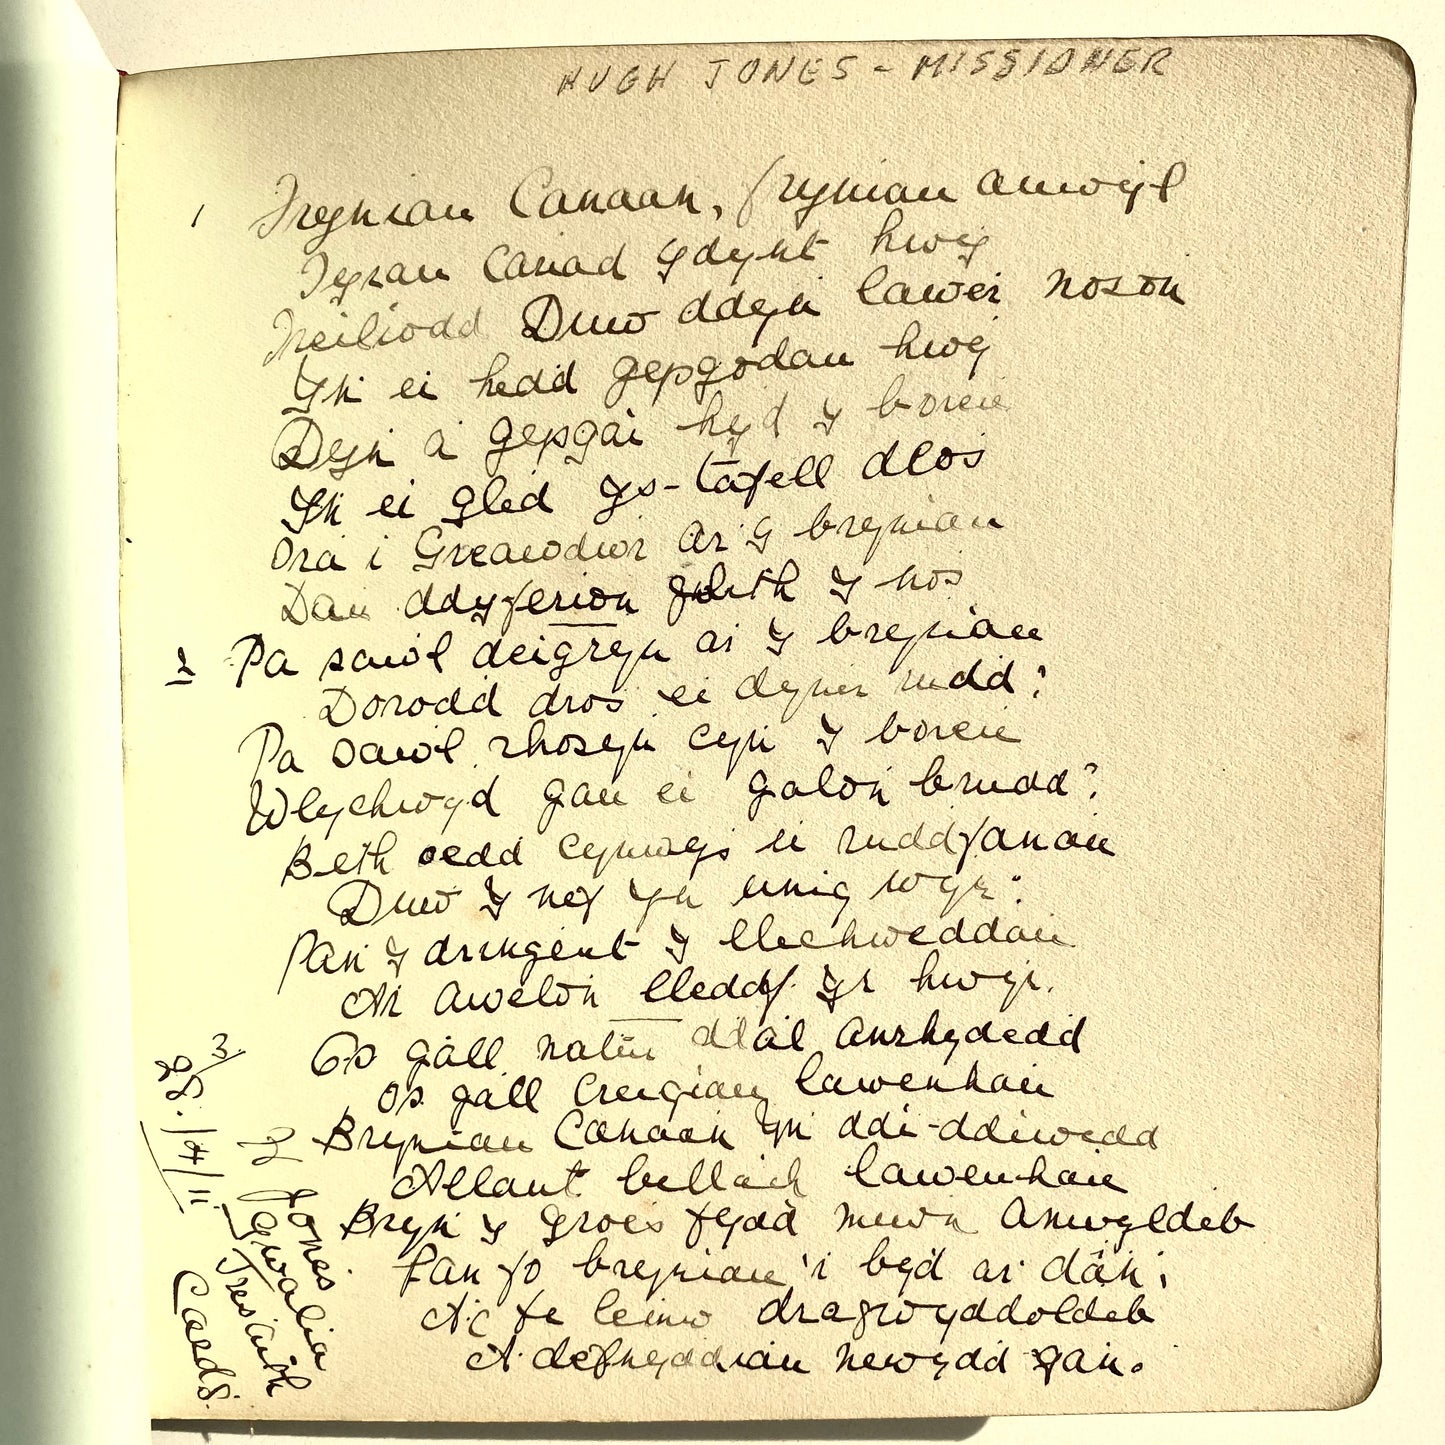 HUGH JONES - MISSIONER
1 Bryniau Canaan, bryniau anwyl
Tyrau cariad ydynt hwy
Neiliodd Duw ddyn lawer noson
Yn ei hedd gysgodau hwy
Dyn a gysgai hyd y boreu
Yn ei glud ys-tafell dlos
Ond i Greawdwr ar y bryniau
Dan ddyferion gwlith y nos
2 Pa sawl deigryn ar y bryniau
Dorodd dros ei dyner rudd?
Pa sawl rhosyn cyn y boreu
Wlychwyd gan ei galon brudd?
Beth oedd cymwys ei ruddfanau
Duw y nef yn unig wyr:
Pan y dringent y llechweddau
Ar awelon lleddf yr hwyr.
3 Os gall natur ddal anrhydedd
Os gall creigiau lawenhau
Bryniau Canaan yn ddi-ddiwedd
Allant bellach lawenhau
Bryn y Groes fydd mewn anwyldeb
Pan fo bryniau'r byd ar dân;
A'c fe leinw dragwyddoldeb
A defnyddiau newydd gân.
H Jones
Gwalia
Trefrith
Coeds.
28/4/11